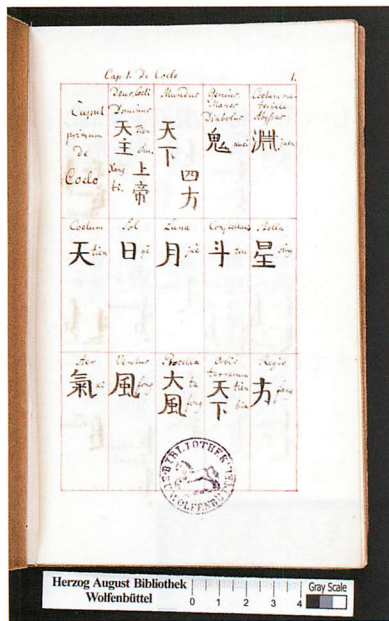 Cap 1. De Coelo 1.
Caput
primum
de
Coelo
Deus, Coeli
Dominus
天主 tien
chu
上帝
ti.
Mundus
天下
四方
Genius
Manes
Diabolus
鬼 quei
Coelum ma-
teriale
Abyssus
淵 juen
Coelum
天 tien
Sol
日
Luna
月
斗 teu
Stella
星 sing
Aer
氣
Ventus
風 fong
Procella
大風 ta
fong
Orbis
terrarum
天下 tien
hia
Regio
方 fang
BIBLIOTHEK
WOLFENBÜTTEL
Herzog August Bibliothek
Wolfenbüttel
0 1 2 3 4
Gray Scale